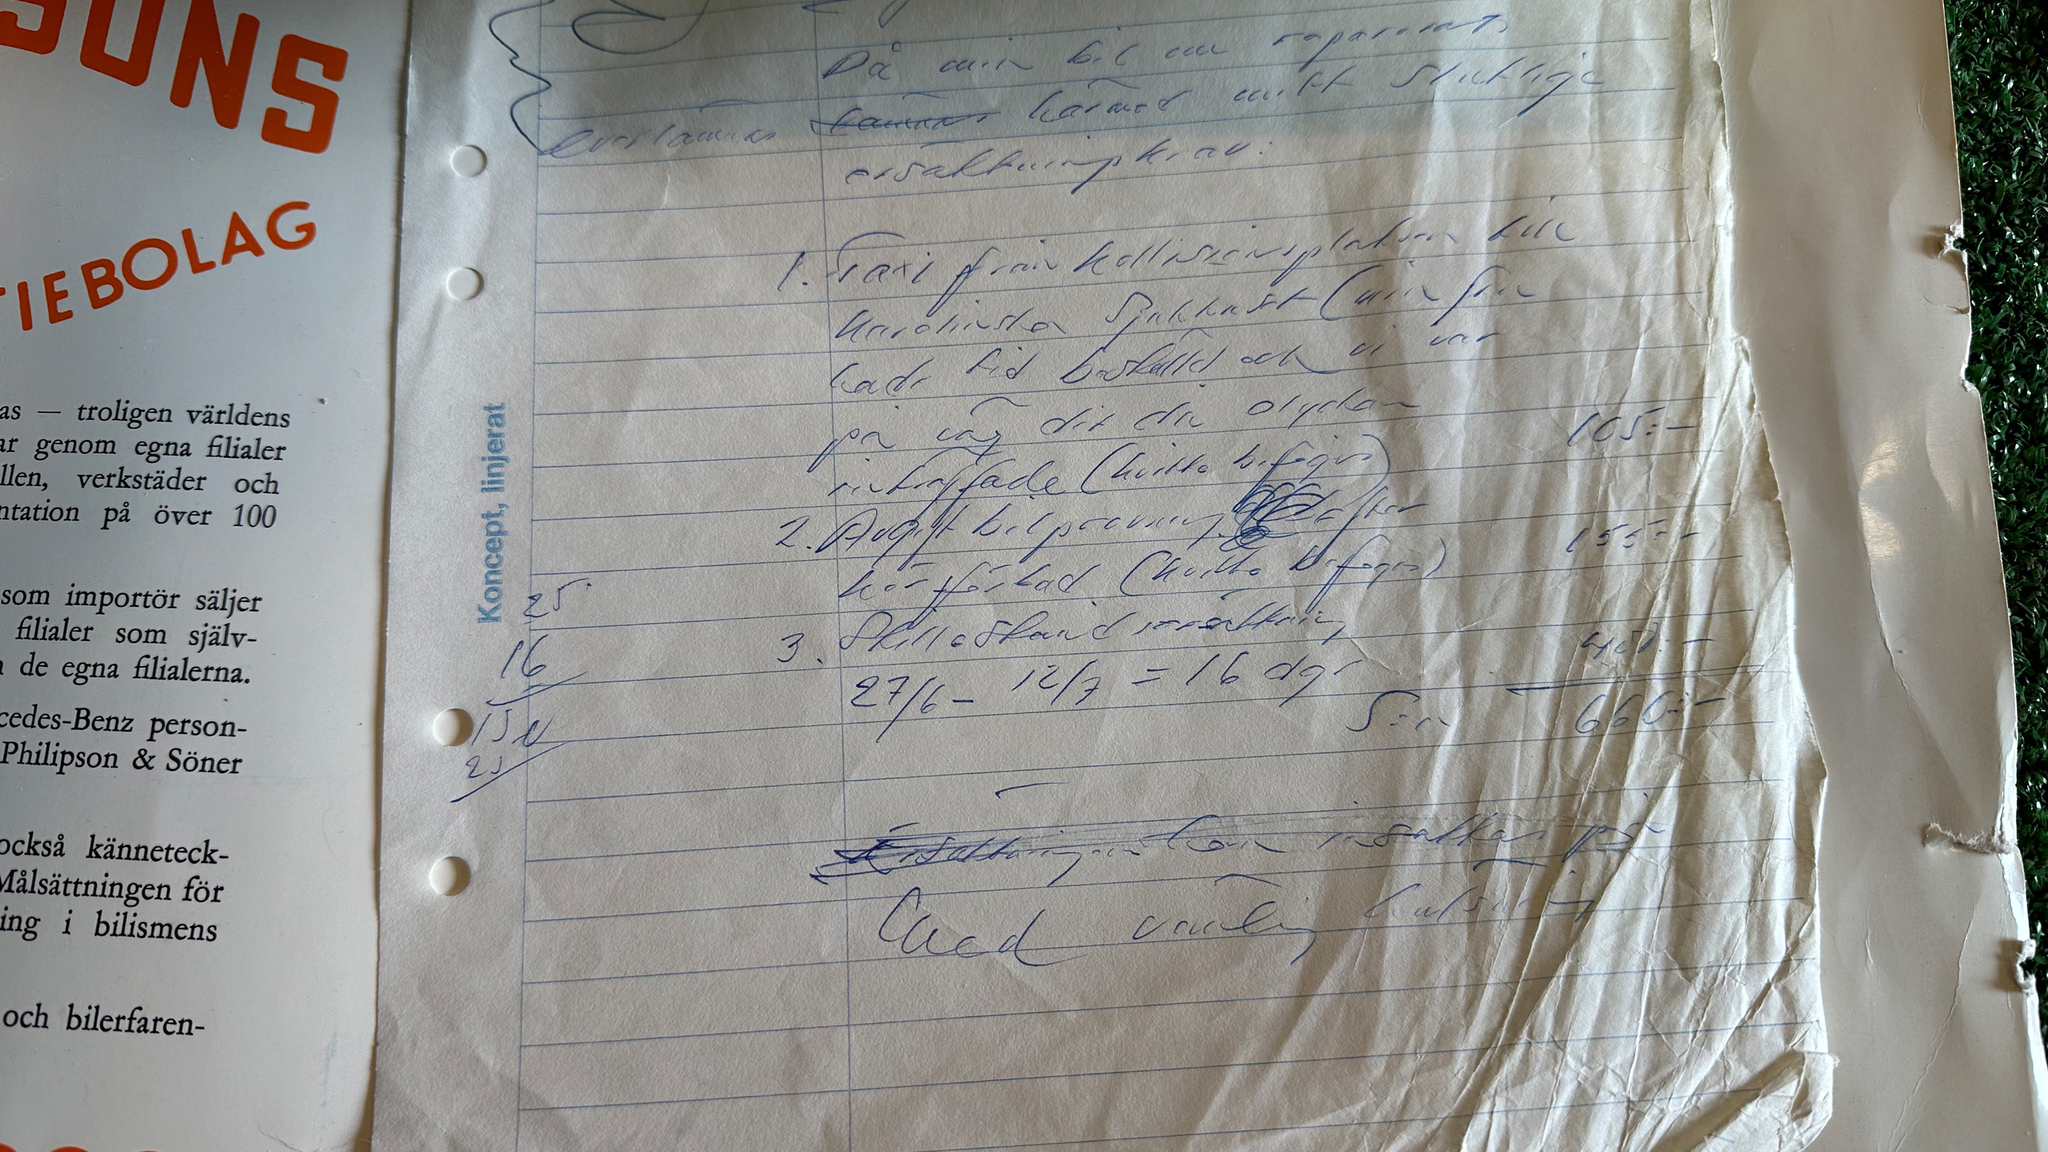 SONS
TIEBOLAG
as — troligen världens
ar genom egna filialer
llen, verkstäder och
ntation på över 100
som importör säljer
filialer som själv-
de egna filialerna.
cedes-Benz person-
Philipson & Söner
också känneteck-
Målsättningen för
ing i bilismens
och bilerfaren-
Koncept, linjerat
Då min bil nu reparerats
överlämnas härmed mitt slutliga
ersättningskrav:
1. Taxi från kollisionsplatsen till
Karolinska Sjukhuset (min fru
hade tid beställd och vi var
på väg dit då olyckan
inträffade (kvitto bifogas) 105:-
2. Avgift bilprovning efter
körförbud (kvitto bifogas) 155:-
3. Stilleståndsersättning
27/6 - 12/7 = 16 dgr 400:-
S:a 660:-
25
16
Ersättningen kan insättas på
Med vänlig hälsning